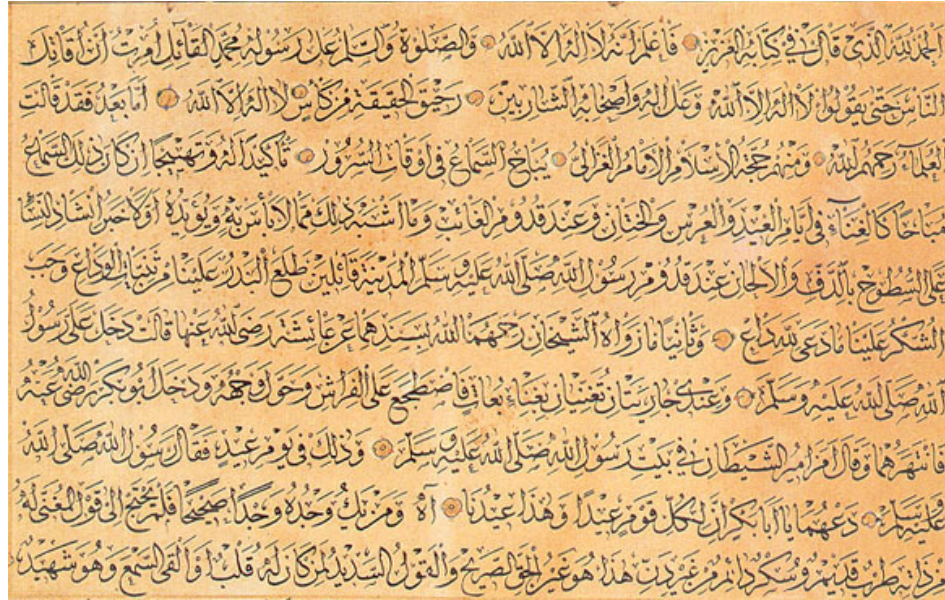 الحمد لله الذى قال فى كتابه العزيز فاعلم انه لا اله الا الله والصلوة والسلم على رسوله محمد القائل امرت ان اقاتل
الناس حتى يقولوا لا اله الا الله وعلى اله واصحابه الشاربين رحيق الحقيقة من كأس لا اله الا الله اما بعد فقد قالت
العلماء رحمهم الله ومنهم حجة الاسلام الامام الغزالى يباح السماع فى اوقات السرور تأكيدا له وتهييجا ان كان ذلك السماع
مباحا كالغناء فى ايام العيد والعرس والختان وعند قدوم الغائب وما اشبه ذلك مما لا بأس به ويؤيده اولا خبر انشاد النسا
على السطوح بالدف والالحان عند قدوم رسول الله صلى الله عليه وسلم المدينة قائلين طلع البدر علينا من ثنيات الوداع وجب
الشكر علينا ما دعى لله داع وثانيا ما رواه الشيخان رحمهما الله بسندهما عن عائشة رضى الله عنها قالت دخل على رسول
الله صلى الله عليه وسلم وعندى جاريتان تغنيان بغناء بعاث فاضطجع على الفراش وحول وجهه ودخل ابو بكر رضى الله عنه
فانتهرهما وقال امزامير الشيطان فى بيت رسول الله صلى الله عليه وسلم وذلك فى يوم عيد فقال رسول الله صلى الله
عليه وسلم دعهما يا ابا بكر ان لكل قوم عيدا وهذا عيدنا اه ومن يك وجده وجدا صحيحا فلم يحتج الى قول المغنى له
من ذاته طرب قديم وسكر دائم من غير دن هذا هو عين الحق الصريح والقول السديد لمن كان له قلب او القى السمع وهو شهيد